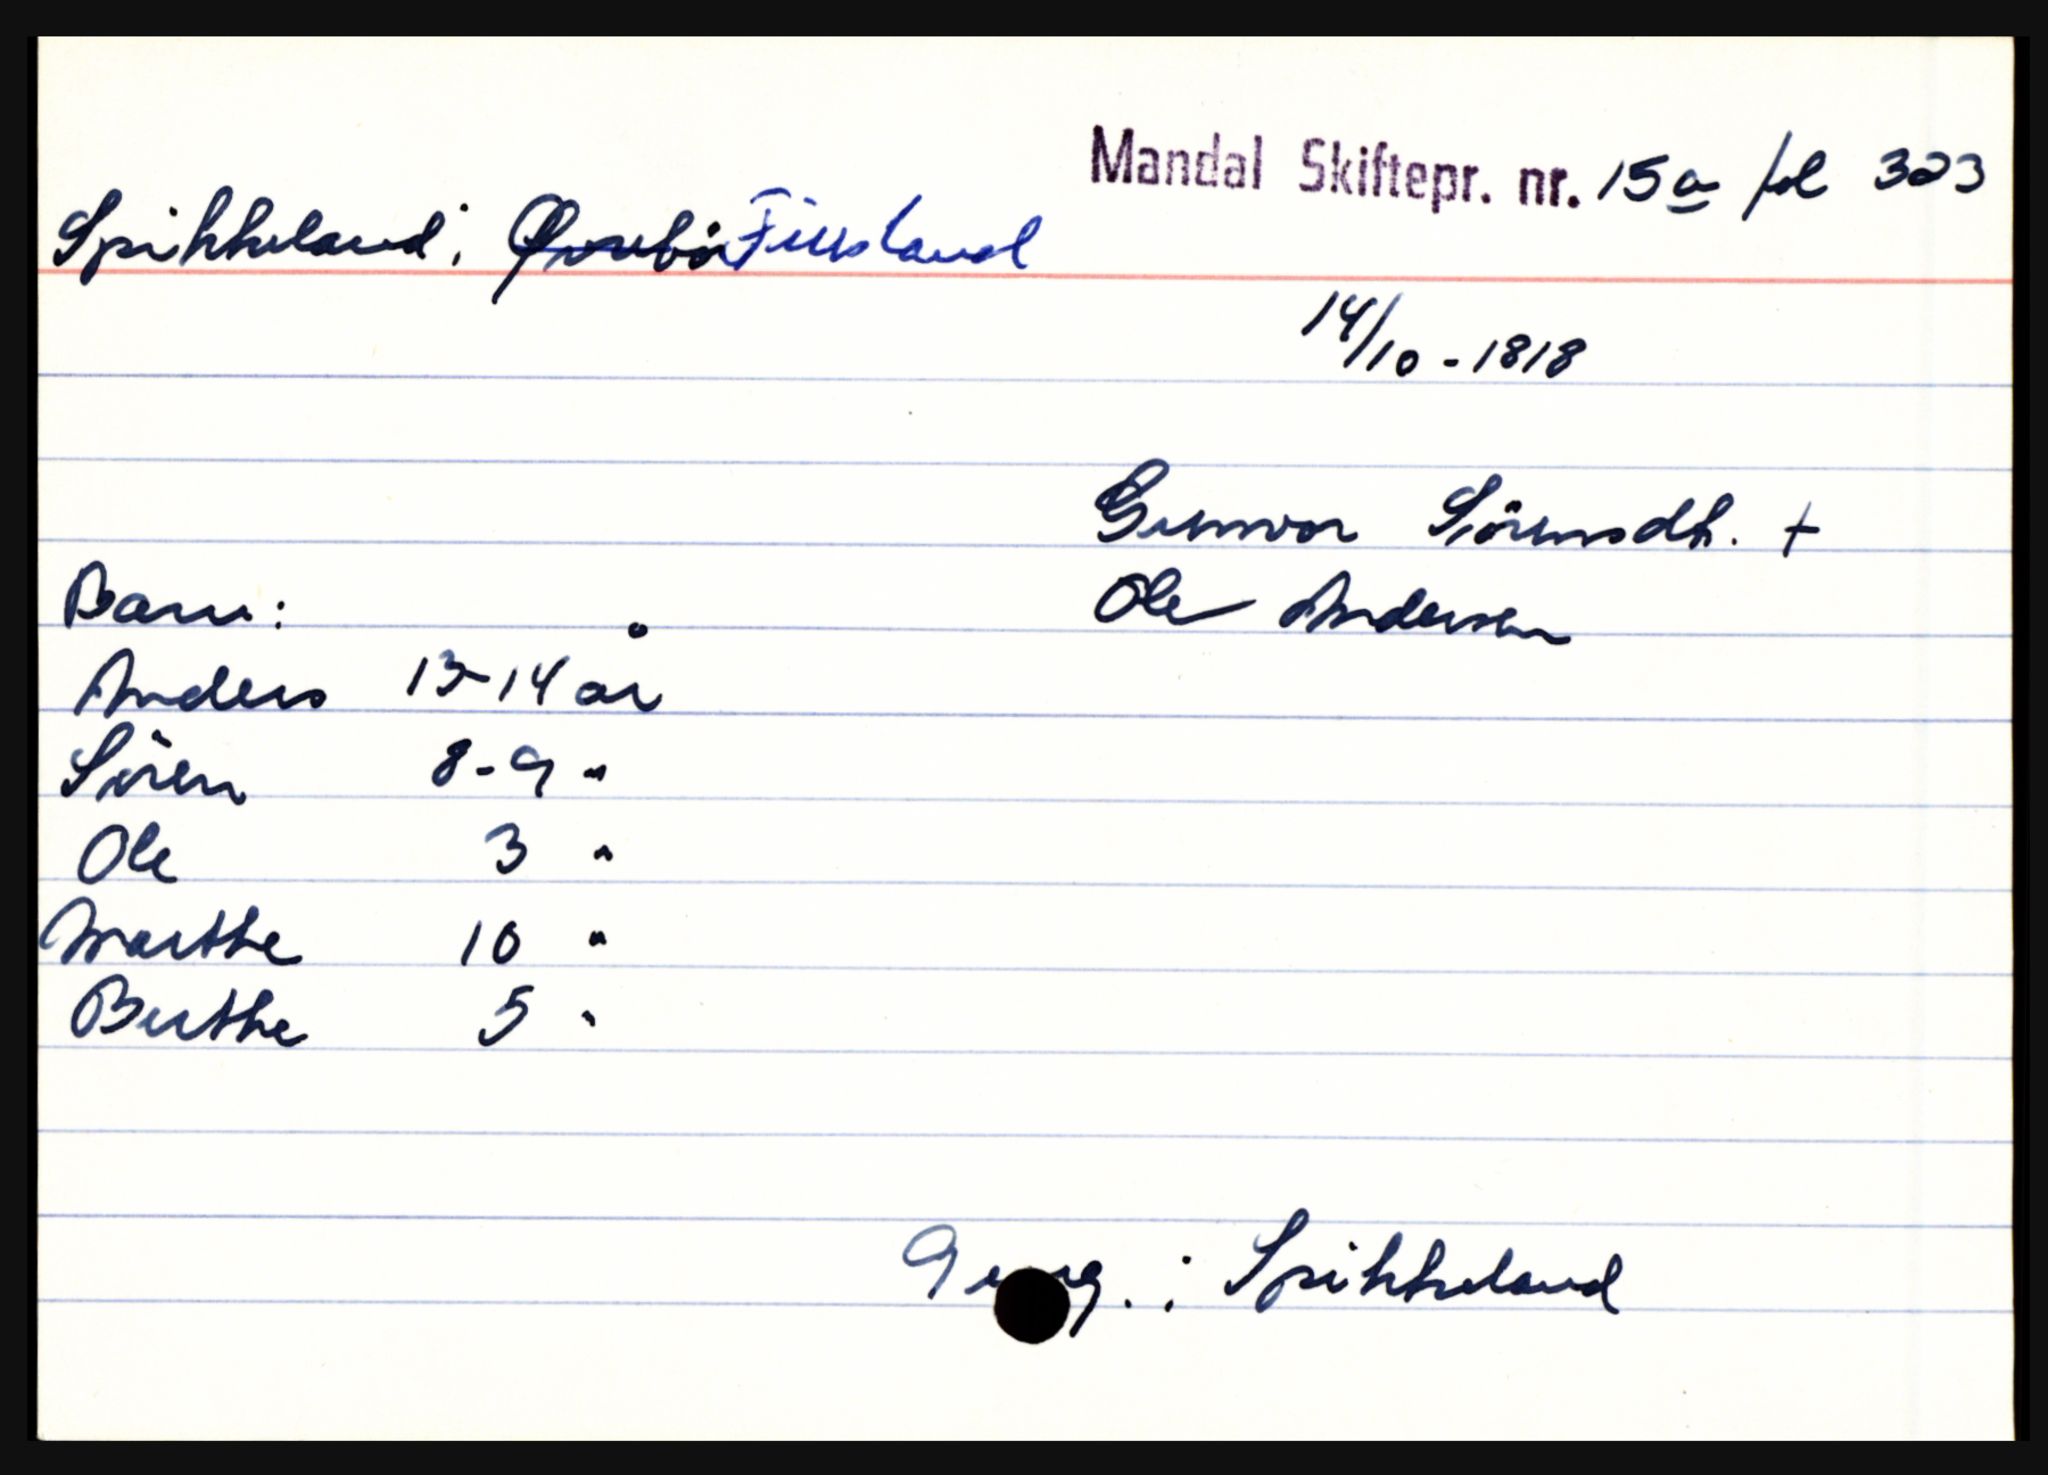 Mandal Skiftepr. nr. 15a fol 323
Spikkeland, Øvrebø Finsland
14/10 - 1818
Gunvor Sörensdh. +
Barn: Ole Andersen
Anders 13-14 år
Sören 8-9 "
Ole 3 "
Marthe 10 "
Berthe 5 "
: Spikkeland